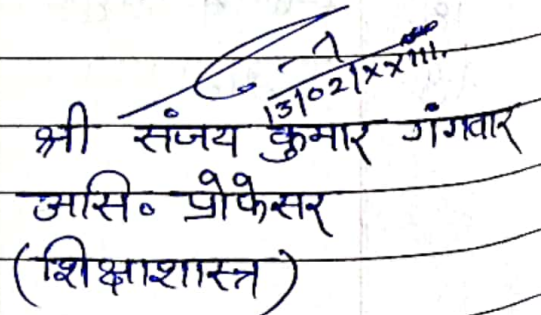 13/02/xxiii.
श्री संजय कुमार गंगवार
असि० प्रोफेसर
(शिक्षाशास्त्र)